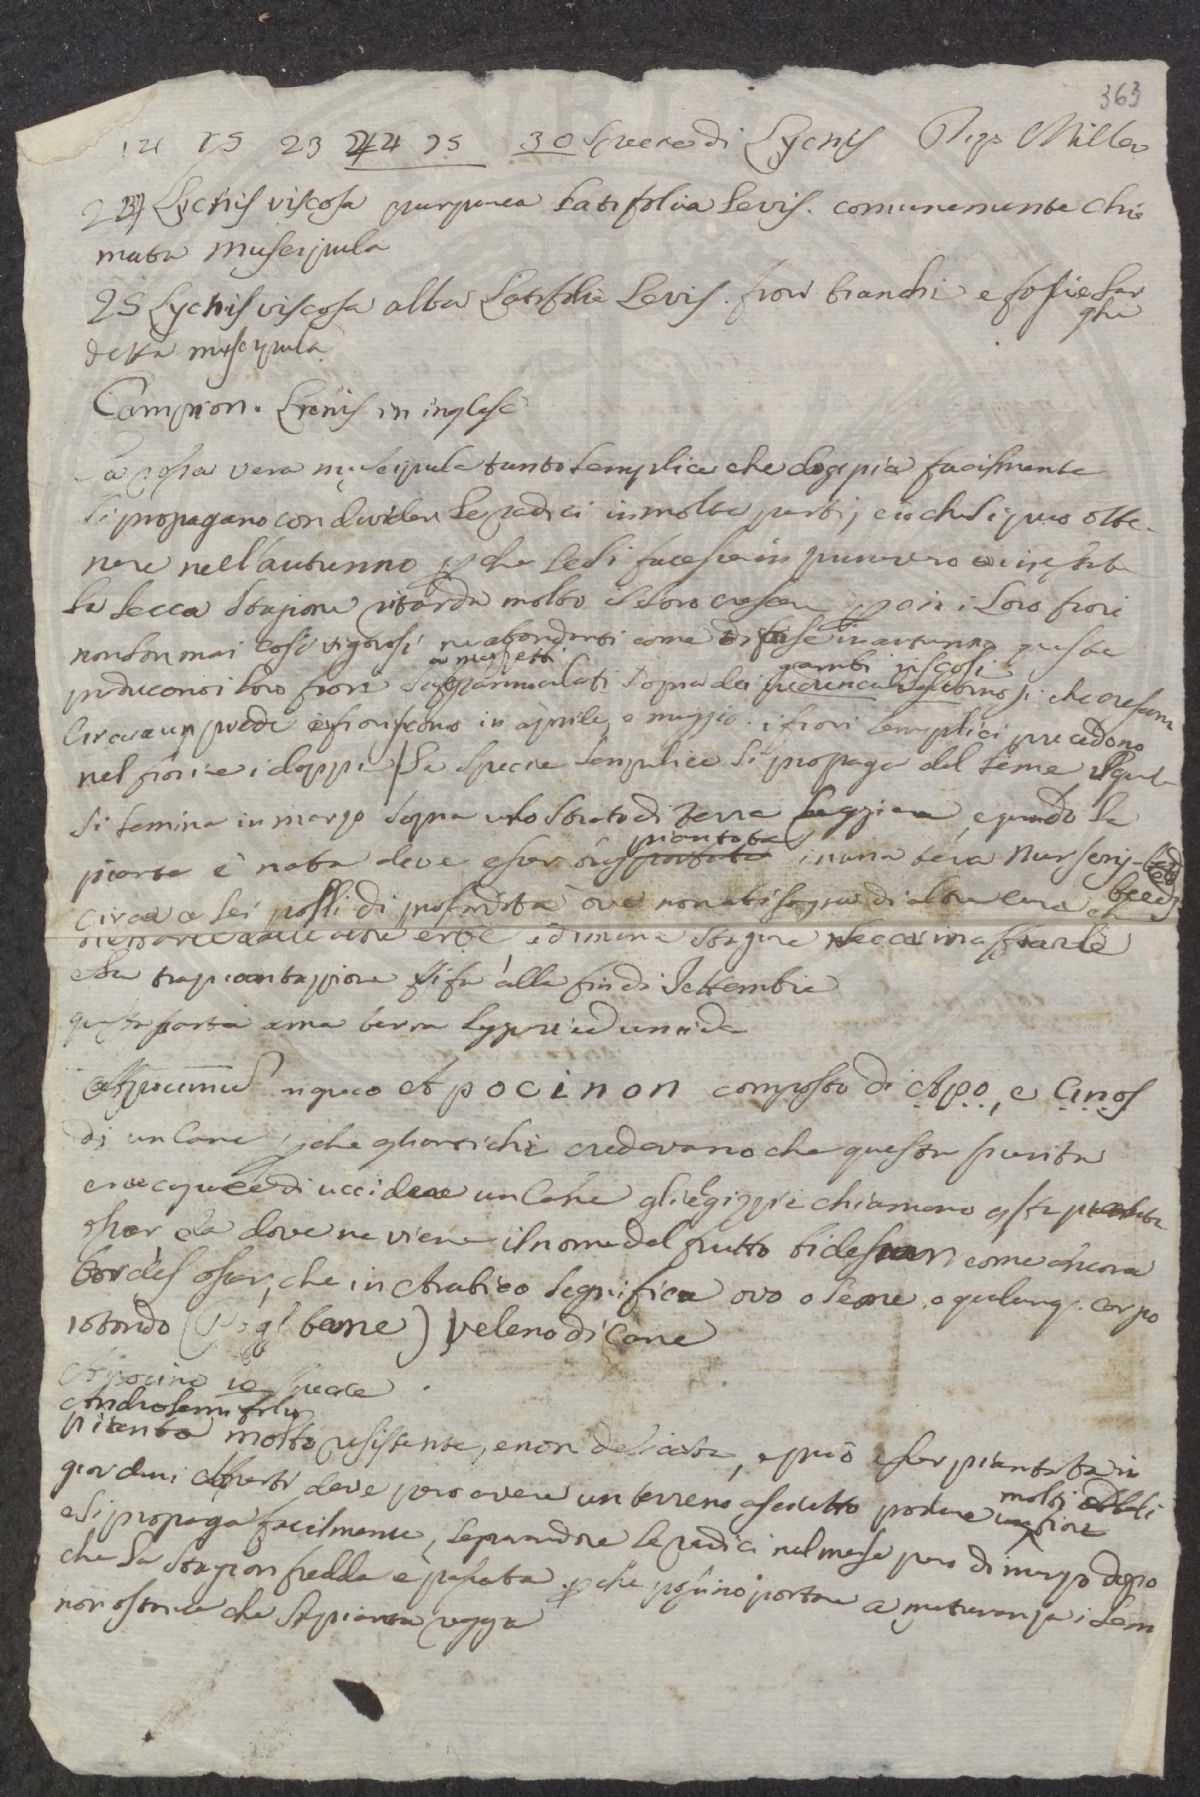 363
14 15 23 24 25 30 Specie di Lychnis Miller
23 Lychnis viscosa purpurea Latifolia Levis. comunemente chia
mata muscipula
25 Lychnis viscosa alba Latifolia Levis. fiori bianchi e foglie Lar
ghe
detta muscipula
Campion. Licnis in inglese
La rossa vera muscipula tanto semplice che doppia facilmente
si propagano con divider le radici in molte parti, cio che si puo otte
nere nell'autunno p che se si facesse in primavera o in estate
La secca stagione ritarda molto il loro crescere poi i loro fiori
non son mai cosi vigorosi ne abondanti come in autunno queste
a mazzetti gambi viscosi
producono i loro fiori sopra dei che crescono
circa a un piede e fioriscono in aprile, o maggio. i fiori semplici precedono
nel fiorire i doppi / La specie semplice si propaga del seme il quale
si semina in marzo sopra uno strato di terra leggiera, e quando la
piantata
pianta è nata deve esser in una terra Nursery-
beds
circa a sei pollici di profondità ove non a bisogno di altra cura che
nettarle dalle altre erbe ed in una stagione secca inaffiarle
e la trapiantazione si fa alla fin di Settembre
questa pianta ama terra leggiera ed umida
Apocinum in greco Apocinon composto di Apo, e Cinos
di un Cane, p che gli antichi credevano che questa pianta
era capace di uccidere un Cane gli Egizzi chiamano qsta pianta
ossar da dove ne viene il nome del frutto bidessar come ancora
ossar, che in Arabico significa ovo o seme, o qualunq. corpo
rotondo (Dogsbane) veleno di Cane
Apocino 10 specie
Androsemifolio
pianta molto resistente, e non delicata, e può esser piantata in
giardini aperti deve pero avere un terreno asciutto
molti
e si propaga facilmente, separandone le radici nel mese pero di marzo dopo
che la stagion fredda è passata. p che possino portare a maturanza i semi
non ostante che la pianta regga